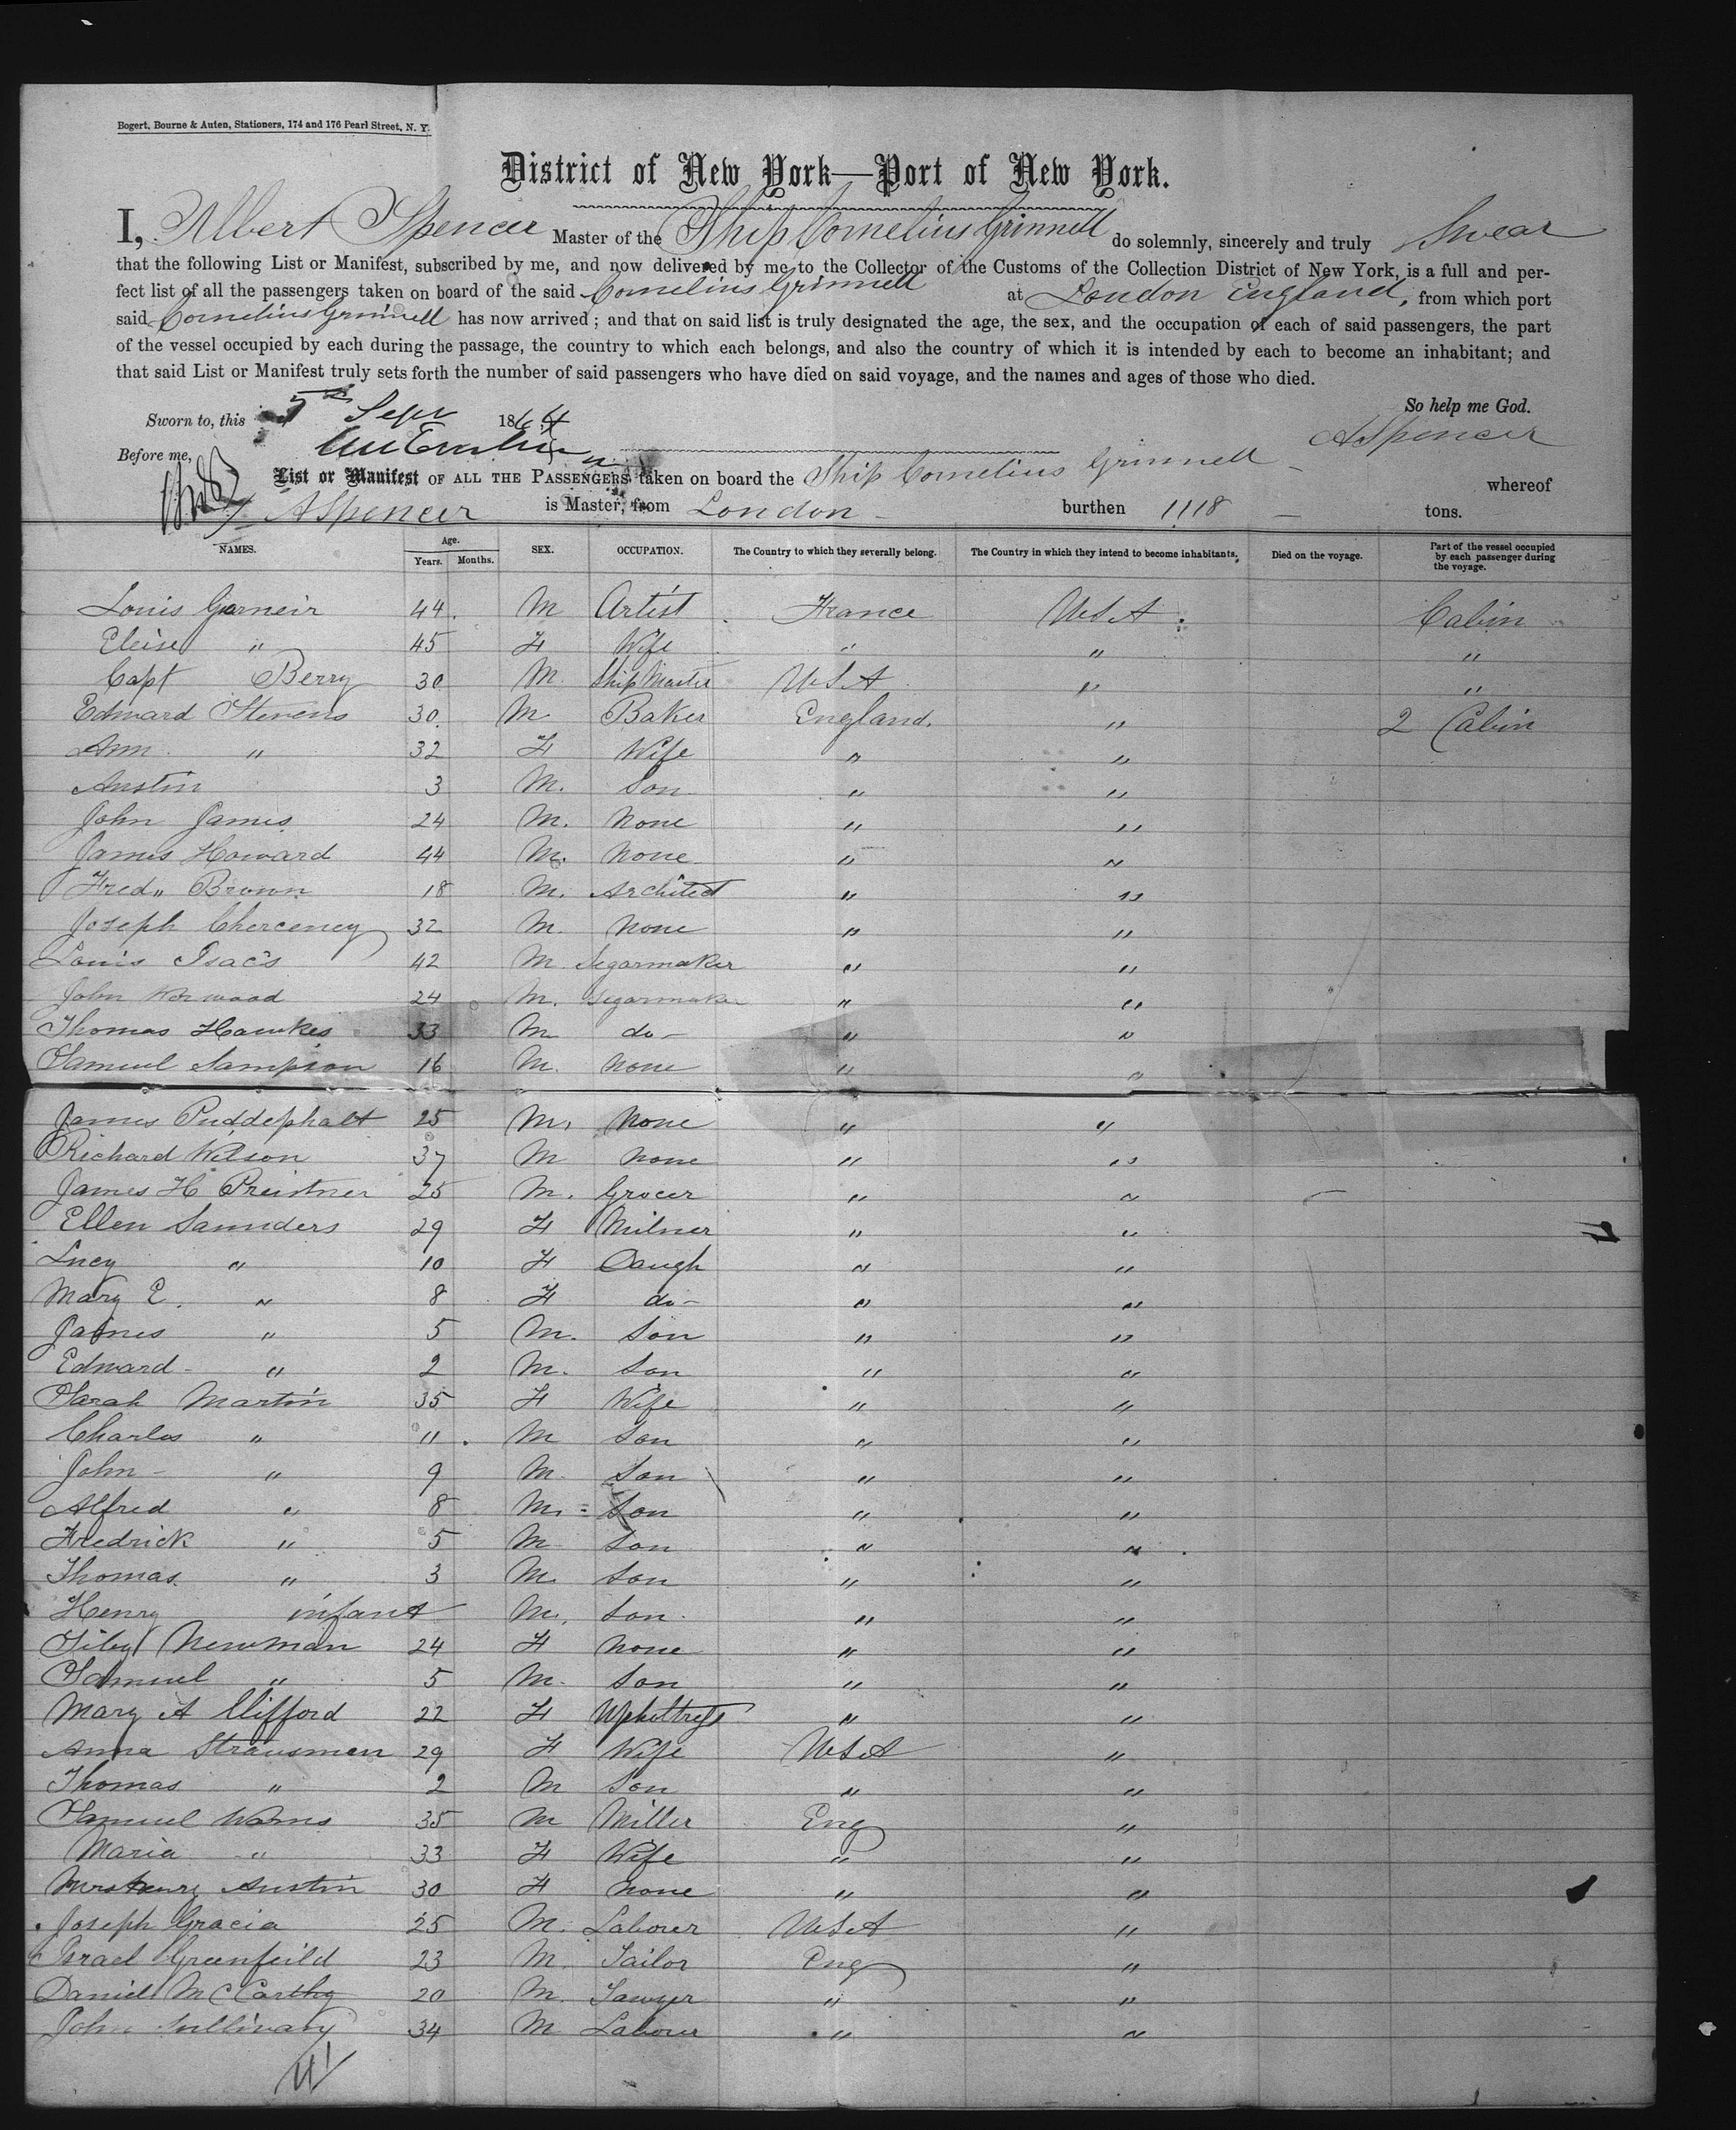 Bogert, Bourne & Auten, Stationers, 174 and 176 Pearl Street, N. Y.
District of New York—Port of New York.
I, Albert Spencer Master of the Ship Cornelius Grinnell do solemnly, sincerely and truly Swear
that the following List or Manifest, subscribed by me, and now delivered by me to the Collector of the Customs of the Collection District of New York, is a full and per-
fect list of all the passengers taken on board of the said Cornelius Grinnell at London England, from which port
said Cornelius Grinnell has now arrived; and that on said list is truly designated the age, the sex, and the occupation of each of said passengers, the part
of the vessel occupied by each during the passage, the country to which each belongs, and also the country of which it is intended by each to become an inhabitant; and
that said List or Manifest truly sets forth the number of said passengers who have died on said voyage, and the names and ages of those who died.
Sworn to, this 5th Sepr 1864 So help me God.
Before me, A Spencer
List or Manifest OF ALL THE PASSENGERS taken on board the Ship Cornelius Grinnell whereof
A Spencer is Master, from London burthen 1118 tons.
NAMES. Age. Years. Months. SEX. OCCUPATION. The Country to which they severally belong. The Country in which they intend to become inhabitants. Died on the voyage. Part of the vessel occupied by each passenger during the voyage.
Louis Garneir 44 M Artist France USA Cabin
Eleise " 45 F Wife " " "
Capt Berry 30 M Ship Master USA " "
Edward Stevens 30 M Baker England " 2 Cabin
Ann " 32 F Wife " "
Austin 3 M. Son " "
John James 24 M. None " "
James Howard 44 M. None " "
Fred" Brown 18 M. Architect " "
Joseph Cherceney 32 M. None " "
Louis Isacs 42 M Segarmaker " "
John Norwood 24 M. Segarmaker " "
Thomas Hawkes 33 M do- " "
Samuel Sampson 16 M. None " "
James Puddephatt 25 M. None " "
Richard Wilson 37 M None " "
James H Preistner 25 M. Grocer " "
Ellen Saunders 29 F Milner " "
Lucy " 10 F Daugh " "
Mary E. " 8 F do- " "
James " 5 M. Son " "
Edward " 2 M. Son " "
Sarah Martin 35 F Wife " "
Charles " 11 M Son " "
John " 9 M. Son " "
Alfred " 8 M. Son " "
Fredrick " 5 M Son " "
Thomas " 3 M Son " "
Henry infant M. Son " "
Newman 24 F None " "
Samuel " 5 M. Son " "
Mary A Clifford 22 F " "
Anna Strausman 29 F Wife USA "
Thomas " 2 M Son " "
Samuel 35 M Miller Eng "
Maria " 33 F Wife " "
Mrs Henry Austin 30 F None " "
Joseph Gracia 25 M. Laborer USA "
Israel Greenfeild 23 M. Tailor Eng "
Daniel McCarthy 20 M. Sawyer " "
John Sullivan 34 M Laborer " "
41